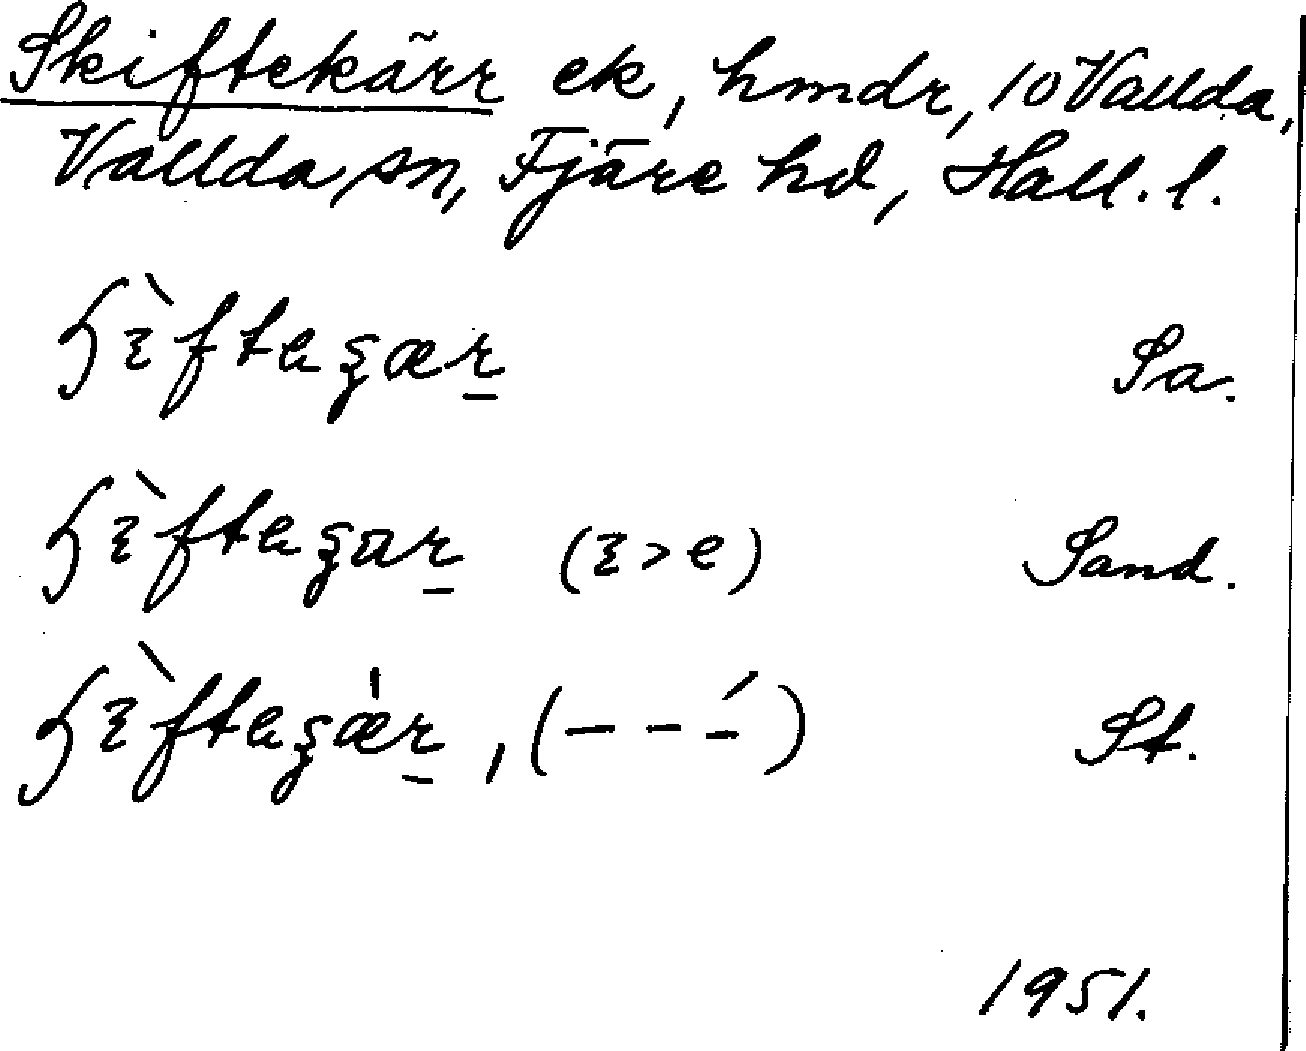 Skiftekärr ek, hmdr, 10 Vallda,
Vallda sn, Fjäre hd, Hall. l.
Sa.
(ɛ > e) Sand.
, (– – –́) St.
1951.